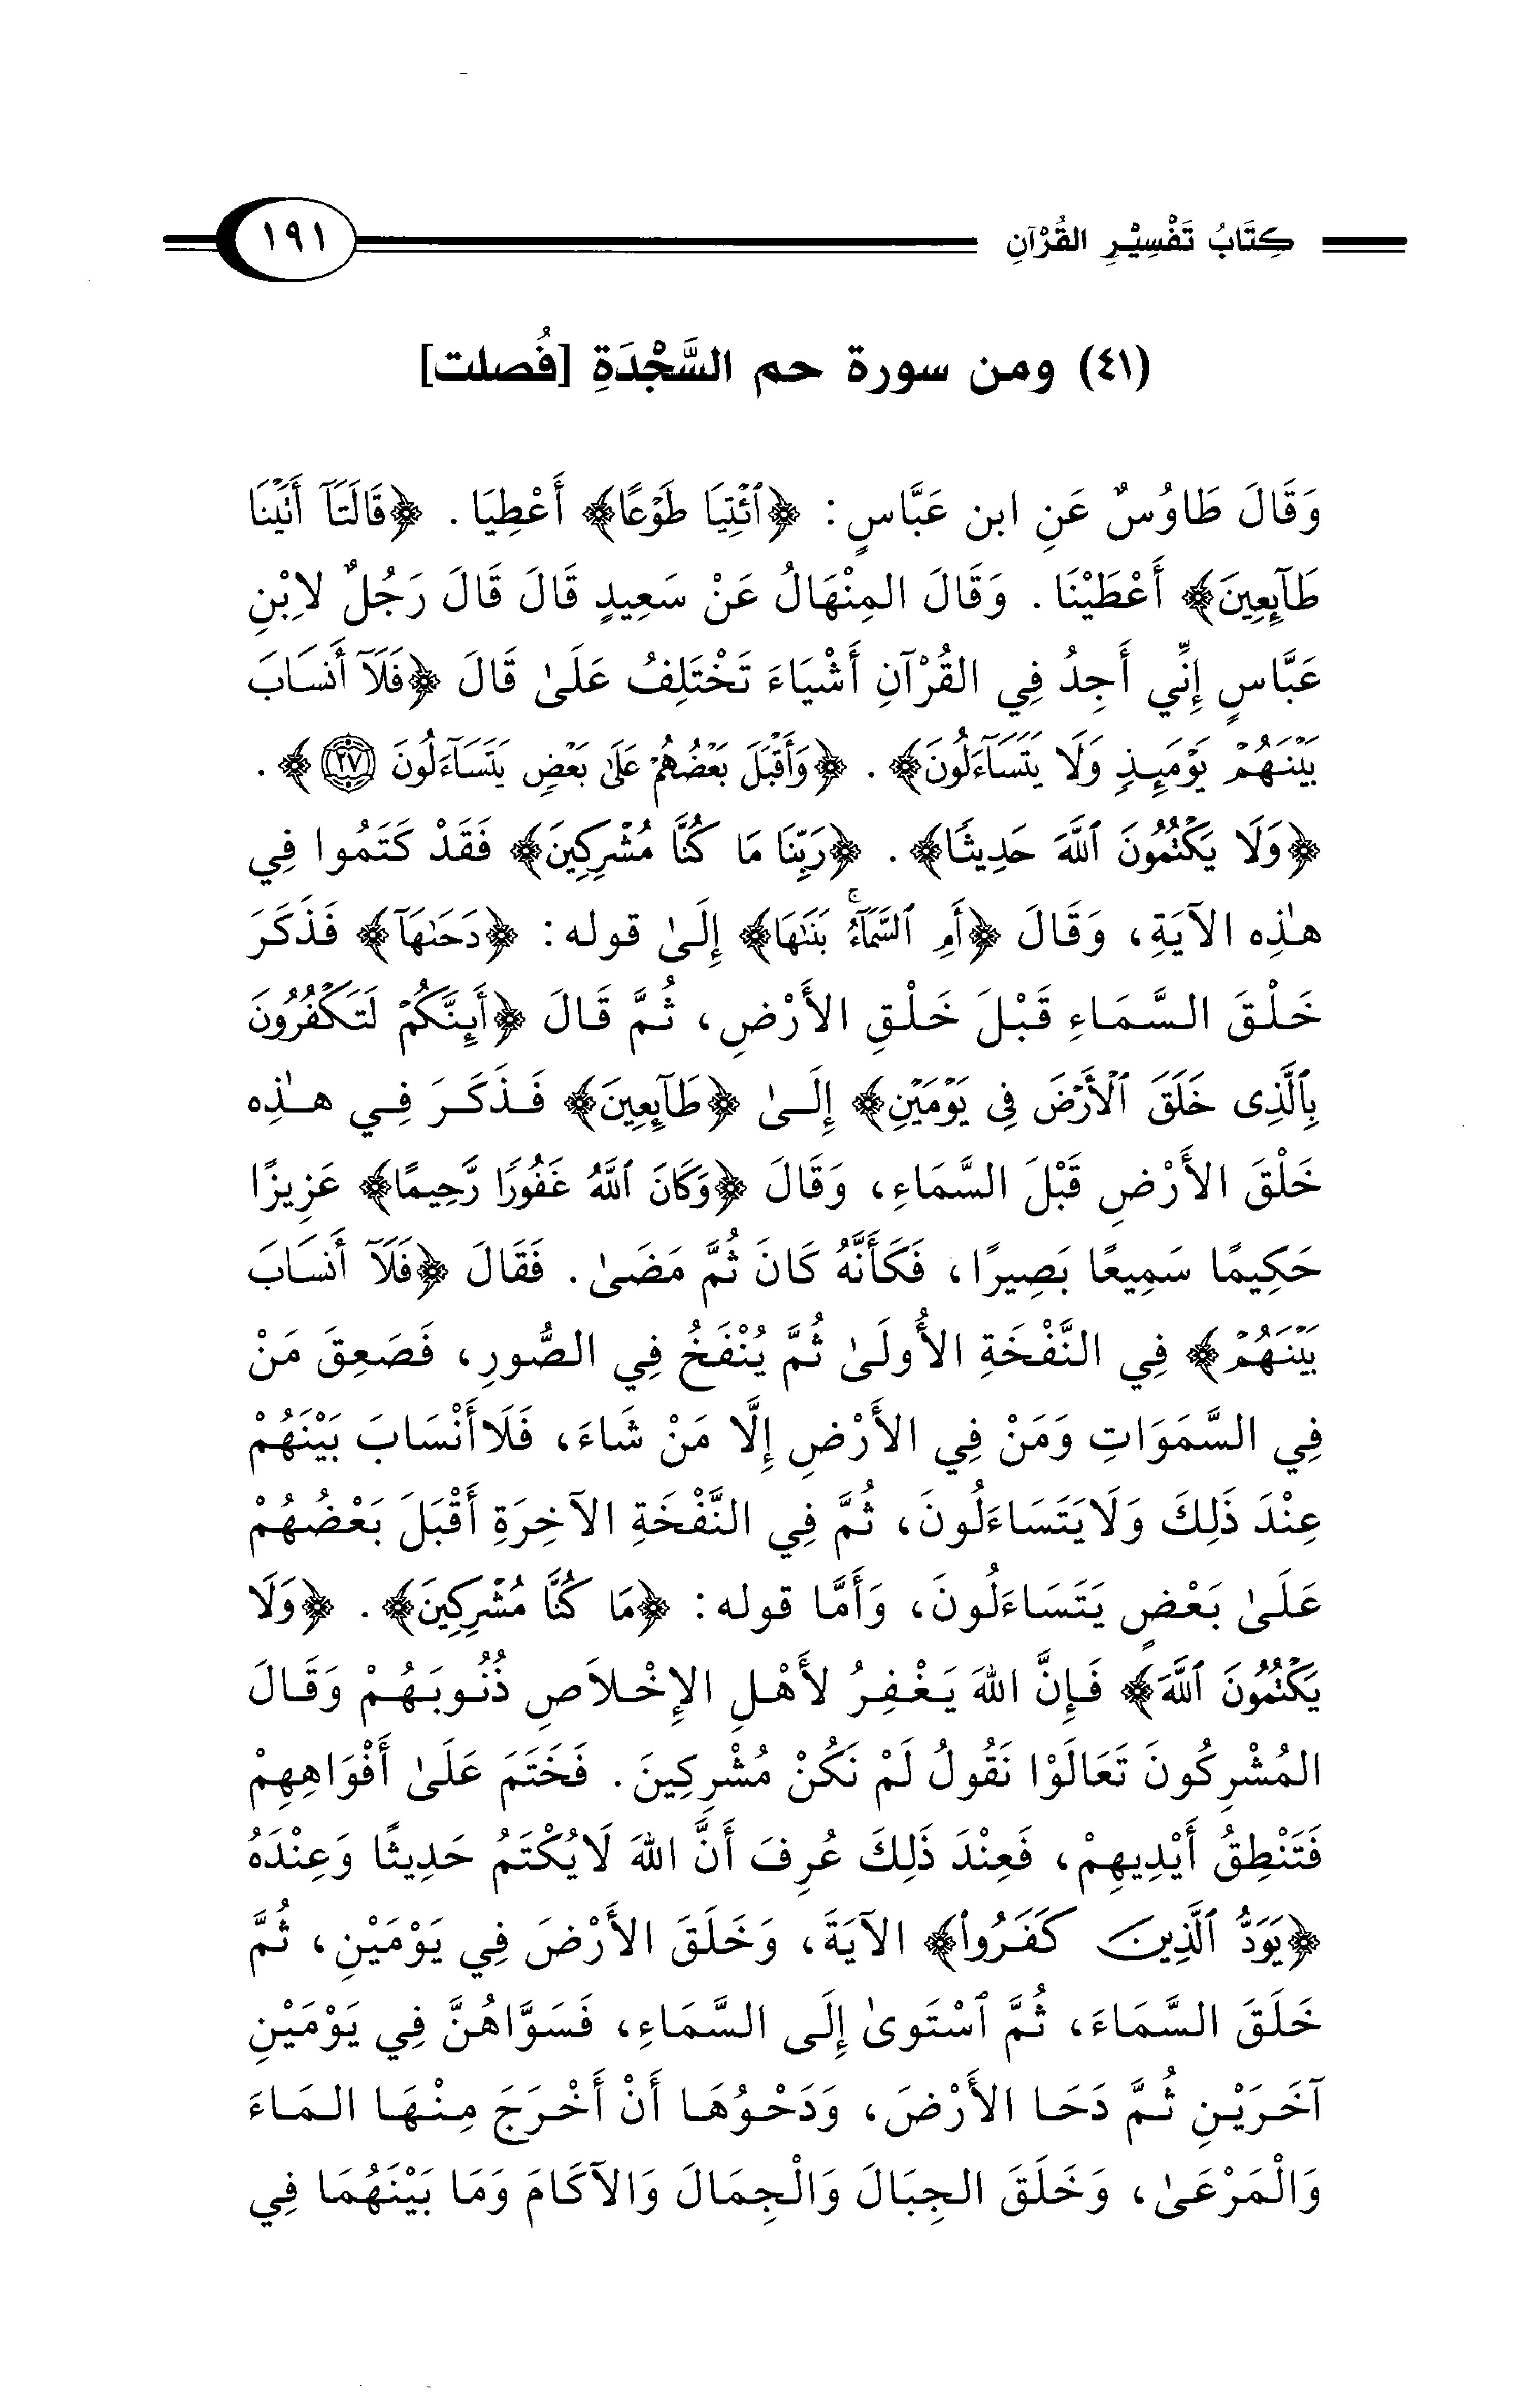 كِتَابُ تَفْسِيْرِ القُرْآنِ ١٩١
(٤١) ومن سورة حم السَّجْدَةِ [فُصلت]
وَقَالَ طَاوُسٌ عَنِ ابن عَبَّاسٍ : ﴿ٱئْتِيَا طَوْعًا﴾ أَعْطِيَا . ﴿قَالَتَآ أَتَيْنَا
طَآئِعِينَ﴾ أَعْطَيْنَا . وَقَالَ المِنْهَالُ عَنْ سَعِيدٍ قَالَ قَالَ رَجُلٌ لاِبْنِ
عَبَّاسٍ إِنِّي أَجِدُ فِي القُرْآنِ أَشْيَاءَ تَخْتَلِفُ عَلَىٰ قَالَ ﴿فَلَآ أَنسَابَ
بَيْنَهُمْ يَوْمَئِذٍ وَلَا يَتَسَآءَلُونَ﴾ . ﴿وَأَقْبَلَ بَعْضُهُمْ عَلَىٰ بَعْضٍ يَتَسَآءَلُونَ ٢٧﴾ .
﴿وَلَا يَكْتُمُونَ ٱللَّهَ حَدِيثًا﴾ . ﴿رَبِّنَا مَا كُنَّا مُشْرِكِينَ﴾ فَقَدْ كَتَمُوا فِي
هٰذِه الآيَةِ، وَقَالَ ﴿أَمِ ٱلسَّمَآءُۚ بَنَىٰهَا﴾ إِلَىٰ قوله : ﴿دَحَىٰهَآ﴾ فَذَكَرَ
خَلْقَ السَّمَاءِ قَبْلَ خَلْقِ الأَرْضِ، ثُمَّ قَالَ ﴿أَئِنَّكُمْ لَتَكْفُرُونَ
بِٱلَّذِى خَلَقَ ٱلْأَرْضَ فِى يَوْمَيْنِ﴾ إِلَىٰ ﴿طَآئِعِينَ﴾ فَذَكَرَ فِي هٰذِه
خَلْقَ الأَرْضِ قَبْلَ السَّمَاءِ، وَقَالَ ﴿وَكَانَ ٱللَّهُ غَفُورًا رَّحِيمًا﴾ عَزِيزًا
حَكِيمًا سَمِيعًا بَصِيرًا، فَكَأَنَّهُ كَانَ ثُمَّ مَضَىٰ . فَقَالَ ﴿فَلَآ أَنسَابَ
بَيْنَهُمْ﴾ فِي النَّفْخَةِ الأُولَىٰ ثُمَّ يُنْفَخُ فِي الصُّورِ، فَصَعِقَ مَنْ
فِي السَّمَوَاتِ وَمَنْ فِي الأَرْضِ إِلَّا مَنْ شَاءَ، فَلَا أَنْسَابَ بَيْنَهُمْ
عِنْدَ ذَلِكَ وَلَا يَتَسَاءَلُونَ، ثُمَّ فِي النَّفْخَةِ الآخِرَةِ أَقْبَلَ بَعْضُهُمْ
عَلَىٰ بَعْضٍ يَتَسَاءَلُونَ، وَأَمَّا قوله : ﴿مَا كُنَّا مُشْرِكِينَ﴾ . ﴿وَلَا
يَكْتُمُونَ ٱللَّهَ﴾ فَإِنَّ اللهَ يَغْفِرُ لأَهْلِ الإِخْلاَصِ ذُنُوبَهُمْ وَقَالَ
المُشْرِكُونَ تَعَالَوْا نَقُولُ لَمْ نَكُنْ مُشْرِكِينَ . فَخَتَمَ عَلَىٰ أَفْوَاهِهِمْ
فَتَنْطِقُ أَيْدِيهِمْ، فَعِنْدَ ذَلِكَ عُرِفَ أَنَّ اللهَ لَا يُكْتَمُ حَدِيثًا وَعِنْدَهُ
﴿يَوَدُّ ٱلَّذِينَ كَفَرُواْ﴾ الآيَةَ، وَخَلَقَ الأَرْضَ فِي يَوْمَيْنِ، ثُمَّ
خَلَقَ السَّمَاءَ، ثُمَّ ٱسْتَوىٰ إِلَى السَّمَاءِ، فَسَوَّاهُنَّ فِي يَوْمَيْنِ
آخَرَيْنِ ثُمَّ دَحَا الأَرْضَ، وَدَحْوُهَا أَنْ أَخْرَجَ مِنْهَا المَاءَ
وَالْمَرْعَىٰ، وَخَلَقَ الجِبَالَ وَالْجِمَالَ وَالآكَامَ وَمَا بَيْنَهُمَا فِي